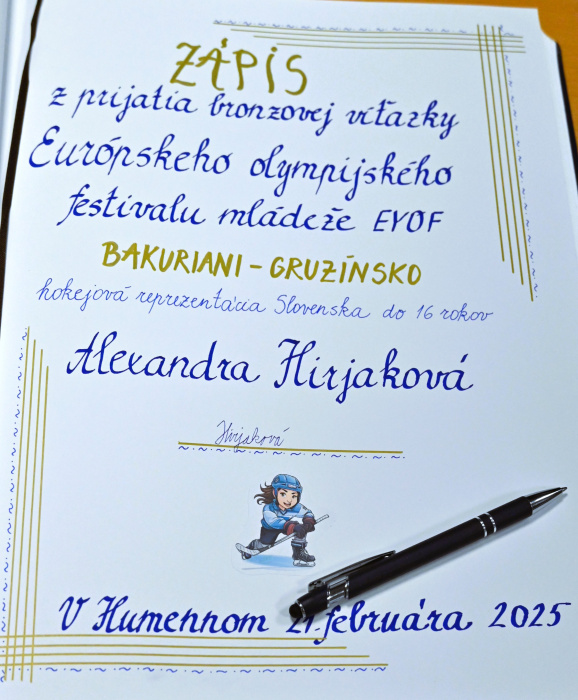 ZÁPIS
z prijatia bronzovej víťazky
Európskeho olympijského
festivalu mládeže EYOF
BAKURIANI - GRUZÍNSKO
hokejová reprezentácia Slovenska do 16 rokov
Alexandra Hirjaková
Hirjaková
V Humennom 21. februára 2025